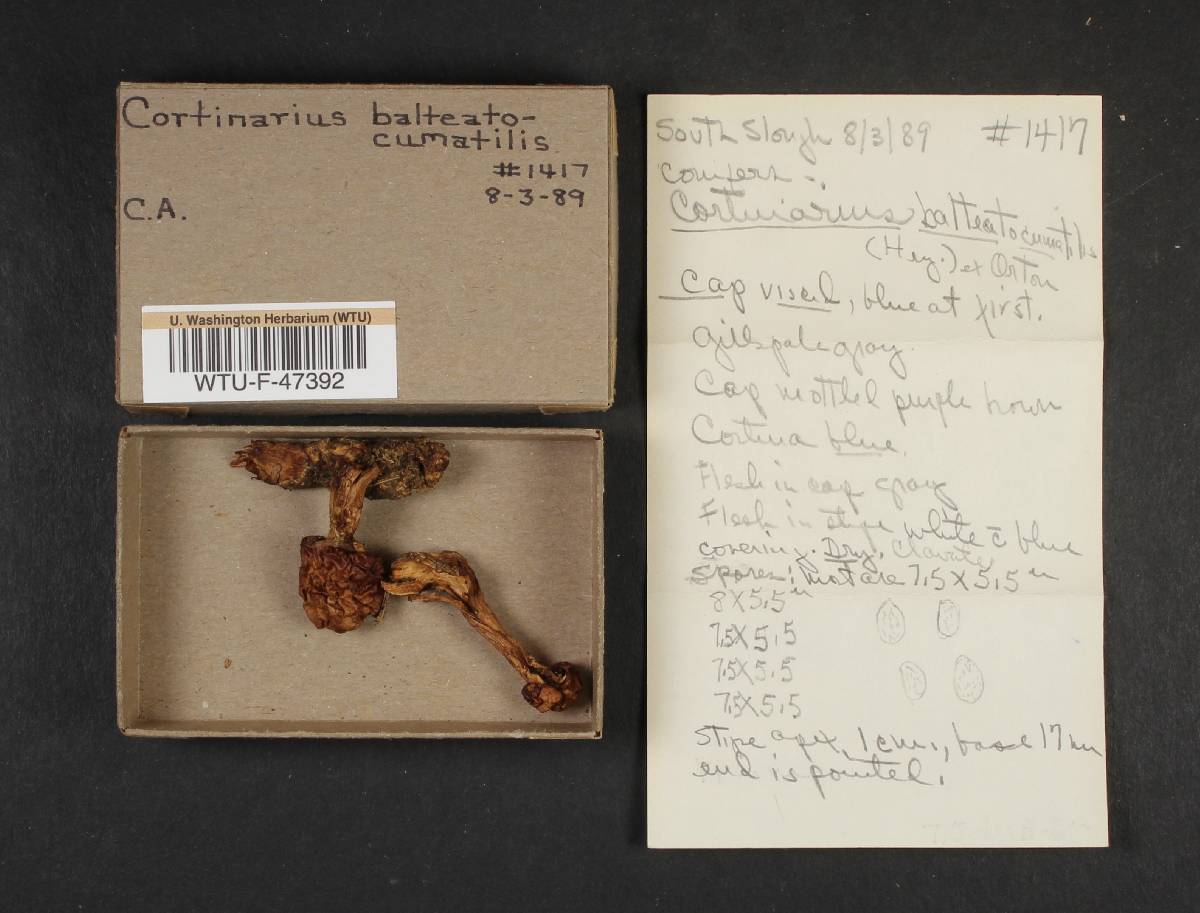 Cortinarius balteato-
cumatilis
#1417
8-3-89
C.A.
U. Washington Herbarium (WTU)
WTU-F-47392
South Slough 8/3/89 #1417
Conifers -.
Cortinarius balteatocumatilis
(Hry.) ex Orton
Cap viscid, blue at first.
Gills pale gray.
Cap mottled purple brown
Cortina blue.
Flesh in cap gray
Flesh in stipe white c̄ blue
covering. Dry, Clavate
Spores: most are 7.5 X 5.5 u
8 X 5.5 u
7.5 X 5.5
7.5 X 5.5
7.5 X 5.5
Stipe apex, 1 cm., base 17 mm
end is pointed.